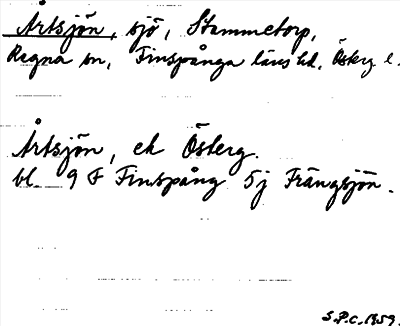 Årtsjön, sjö, Stammetorp,
Regna sn, Finspånga läns hd, Österg l.
Årtsjön, ek Österg.
bl 9 F Finspång 5j Frängsjön.
S.P.C. 1859.